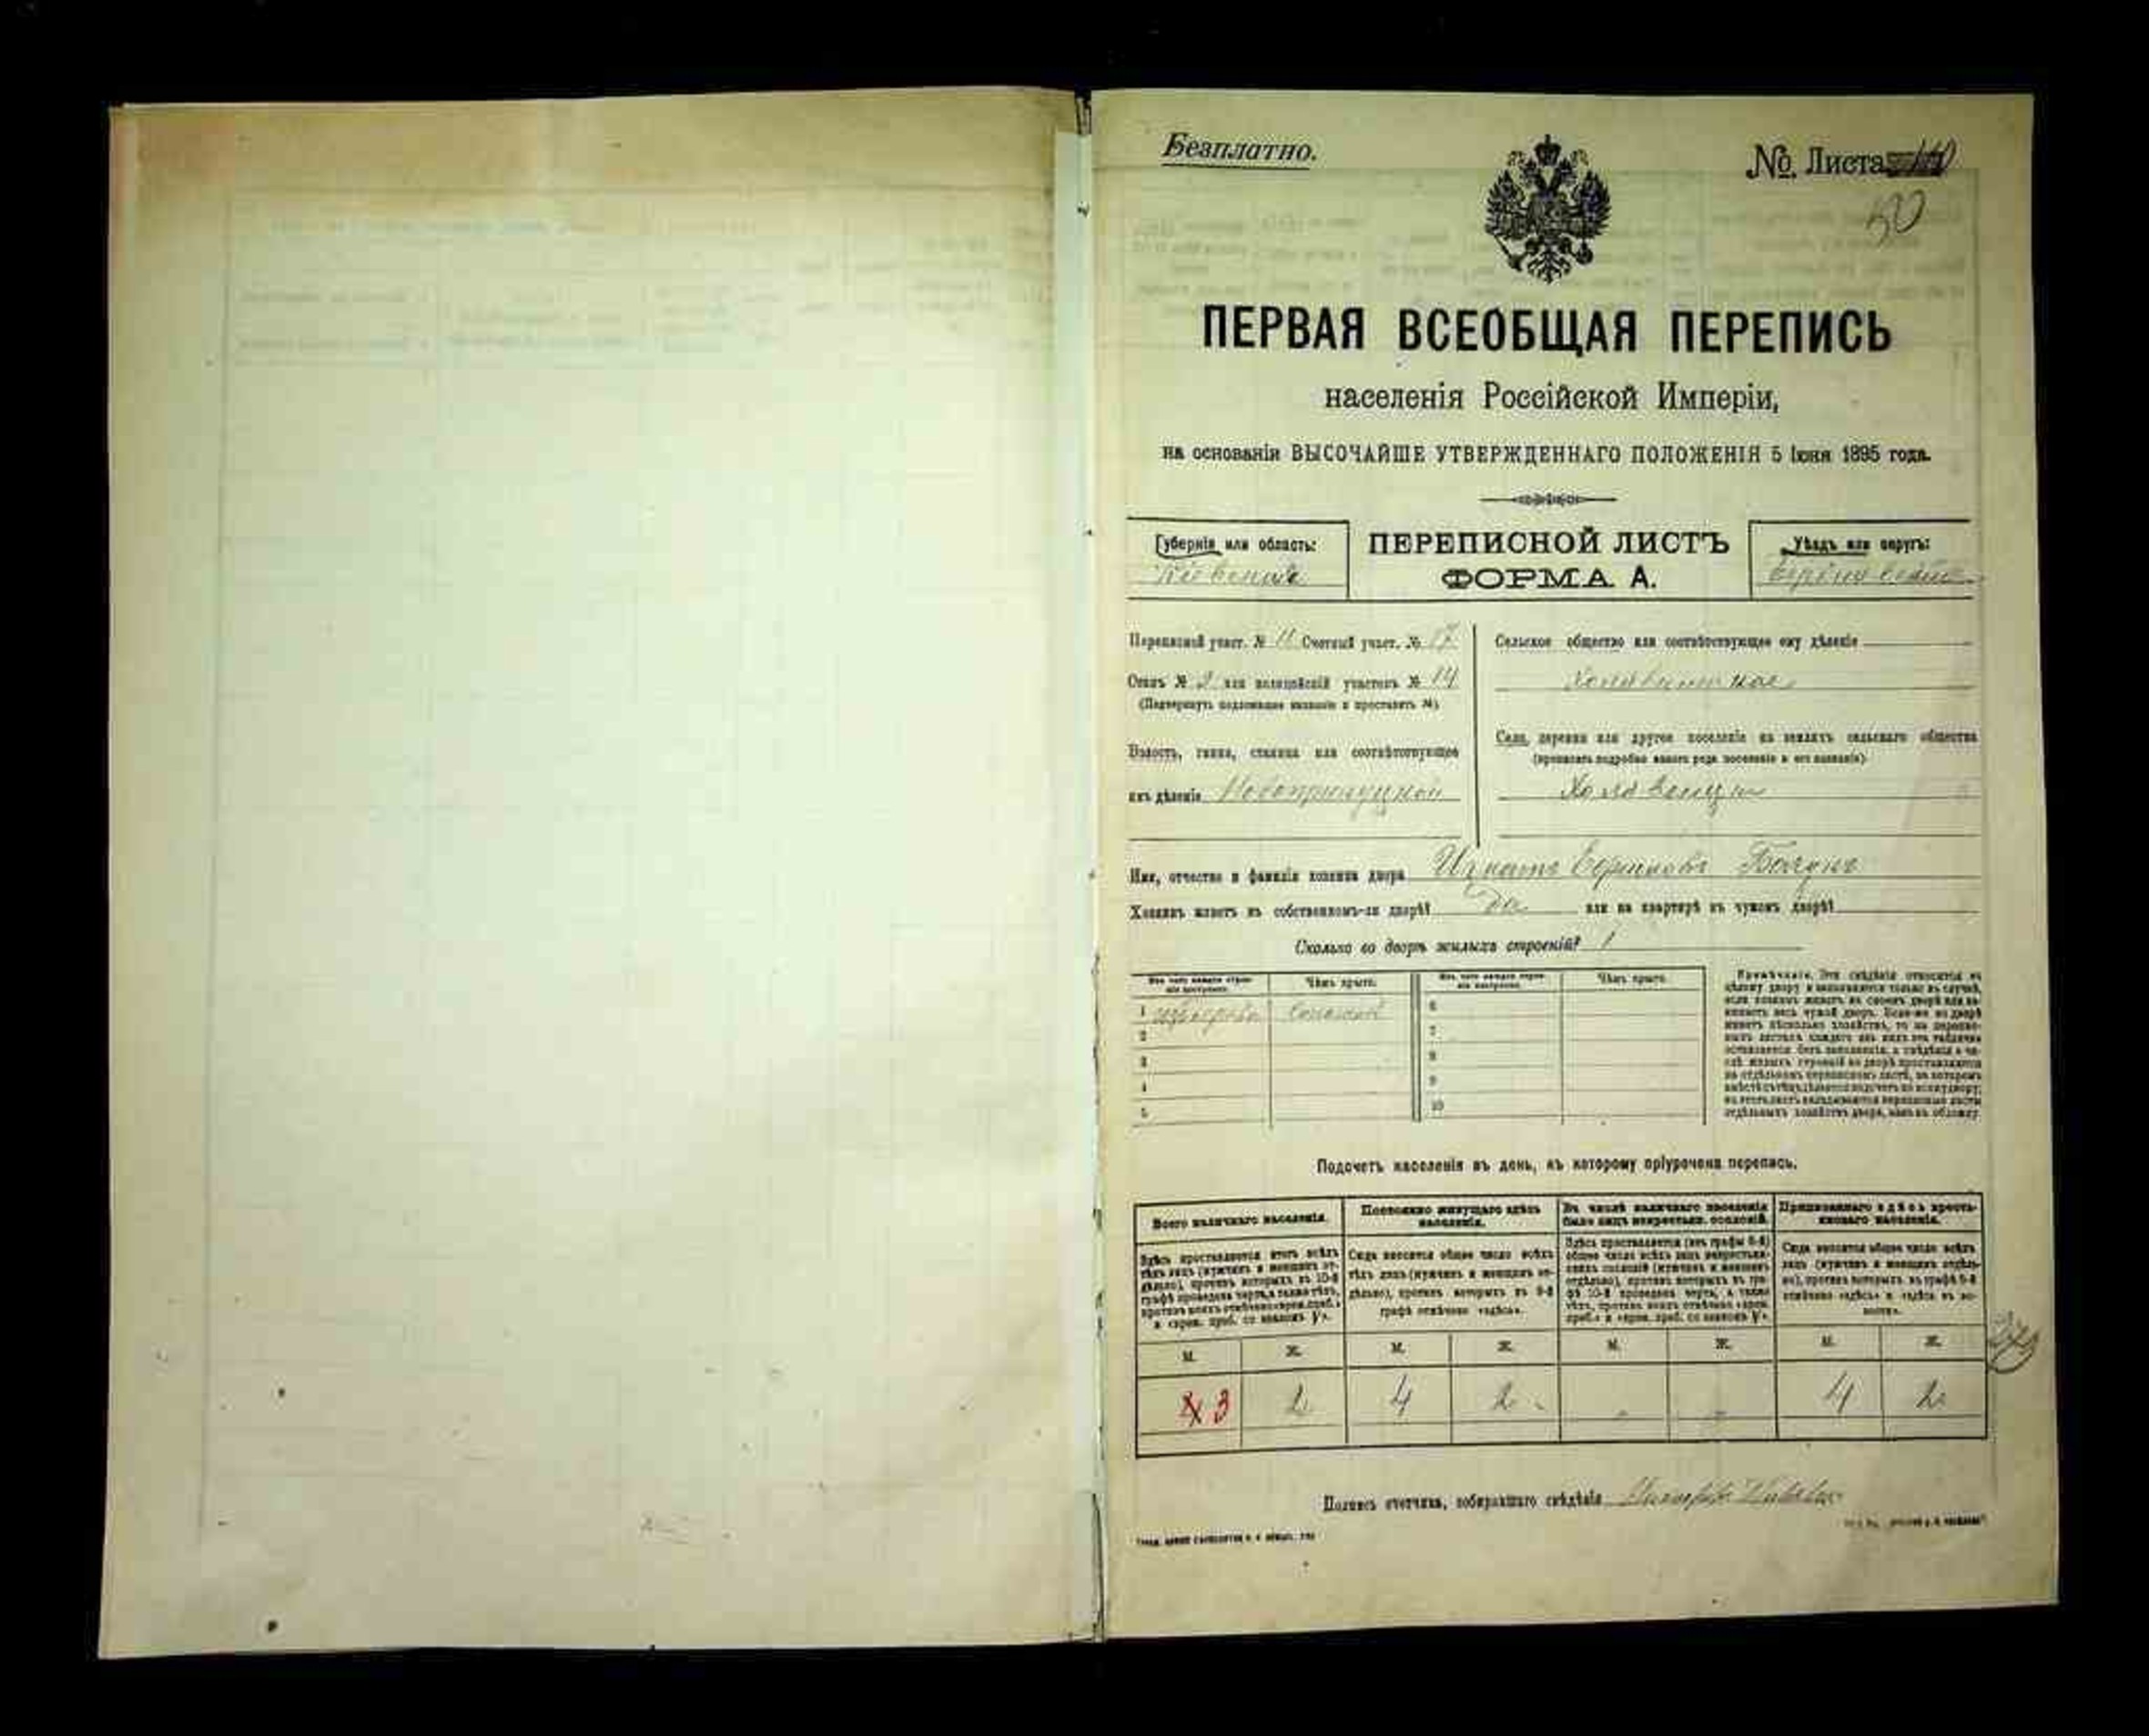 Безплатно.
№ Листа 110
50
ПЕРВАЯ ВСЕОБЩАЯ ПЕРЕПИСЬ
населенія Россійской Имперіи,
на основаніи ВЫСОЧАЙШЕ УТВЕРЖДЕННАГО ПОЛОЖЕНІЯ 5 Іюня 1895 года.
Губернія или область:
Кіевская
ПЕРЕПИСНОЙ ЛИСТЪ
ФОРМА А.
Уѣздъ или округъ:
Переписной участ. № 11 Счетный участ. № 17
Станъ № 2 или полицейскій участокъ № 14
(Подчеркнуть подлежащее названіе и проставить №).
Волость, гмина, станица или соотвѣтствующее
имъ дѣленіе Новоприлуцкой
Сельское общество или соотвѣтствующее ему дѣленіе
Село, деревня или другое поселеніе на земляхъ сельскаго общества
(прописать подробно какого рода поселеніе и его названіе).
Имя, отчество и фамилія хозяина двора Игнатъ Ефимовъ
Хозяинъ живетъ въ собственномъ-ли дворѣ? Да или на квартирѣ въ чужомъ дворѣ?
Сколько во дворѣ жилыхъ строеній? 1
Изъ чего каждое строеніе построено.
Чѣмъ крыто.
Изъ чего каждое строеніе построено.
Чѣмъ крыто.
1 соломой
2
3
4
5
6
7
8
9
10
Примѣчаніе. Эти свѣдѣнія относятся къ
цѣлому двору и заполняются только въ случаѣ,
если хозяинъ живетъ въ своемъ дворѣ или за-
нимаетъ весь чужой дворъ. Если-же во дворѣ
живетъ нѣсколько хозяйствъ, то на перепис-
ныхъ листахъ каждаго изъ нихъ эта табличка
оставляется безъ заполненія, а свѣдѣнія о чи-
слѣ жилыхъ строеній во дворѣ проставляются
на отдѣльномъ переписномъ листѣ, на которомъ
вмѣстѣ съ тѣмъ дѣлается подсчетъ по всему двору;
въ этотъ листъ вкладываются переписные листы
отдѣльныхъ хозяйствъ двора, какъ въ обложку.
Подсчетъ населенія въ день, къ которому пріурочена перепись.
Всего наличнаго населенія.
Постоянно живущаго здѣсь населенія.
Въ числѣ наличнаго населенія было лицъ некрестьян. сословій.
Приписаннаго здѣсь крестьянскаго населенія.
Здѣсь проставляется итогъ всѣхъ
тѣхъ лицъ (мужчинъ и женщинъ от-
дѣльно), противъ которыхъ въ 10-й
графѣ проведена черта, а также тѣхъ,
противъ коихъ отмѣчено «врем. преб.»
и «врем. преб. со знакомъ V».
Сюда вносится общее число всѣхъ
тѣхъ лицъ (мужчинъ и женщинъ от-
дѣльно), противъ которыхъ въ 9-й
графѣ отмѣчено «здѣсь».
Здѣсь проставляется (изъ графы 6-й)
общее число всѣхъ лицъ некрестьян-
скихъ сословій (мужчинъ и женщинъ
отдѣльно), противъ которыхъ въ гра-
фѣ 10-й проведена черта, а также
тѣхъ, противъ коихъ отмѣчено «врем.
преб.» и «врем. преб. со знакомъ V».
Сюда вносится общее число всѣхъ
лицъ (мужчинъ и женщинъ отдѣль-
но), противъ которыхъ въ графѣ 8-й
отмѣчено «здѣсь» и «здѣсь въ во-
лости».
М. Ж. М. Ж. М. Ж. М. Ж.
4 3 2 4 2 - - 4 2
Подпись счетчика, собиравшаго свѣдѣнія